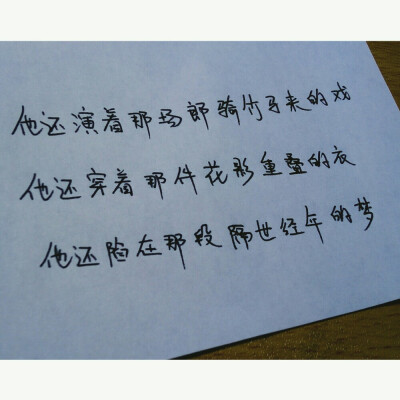 他还演着那场郎骑竹马来的戏
他还穿着那件花影重叠的衣
他还陷在那段隔世经年的梦